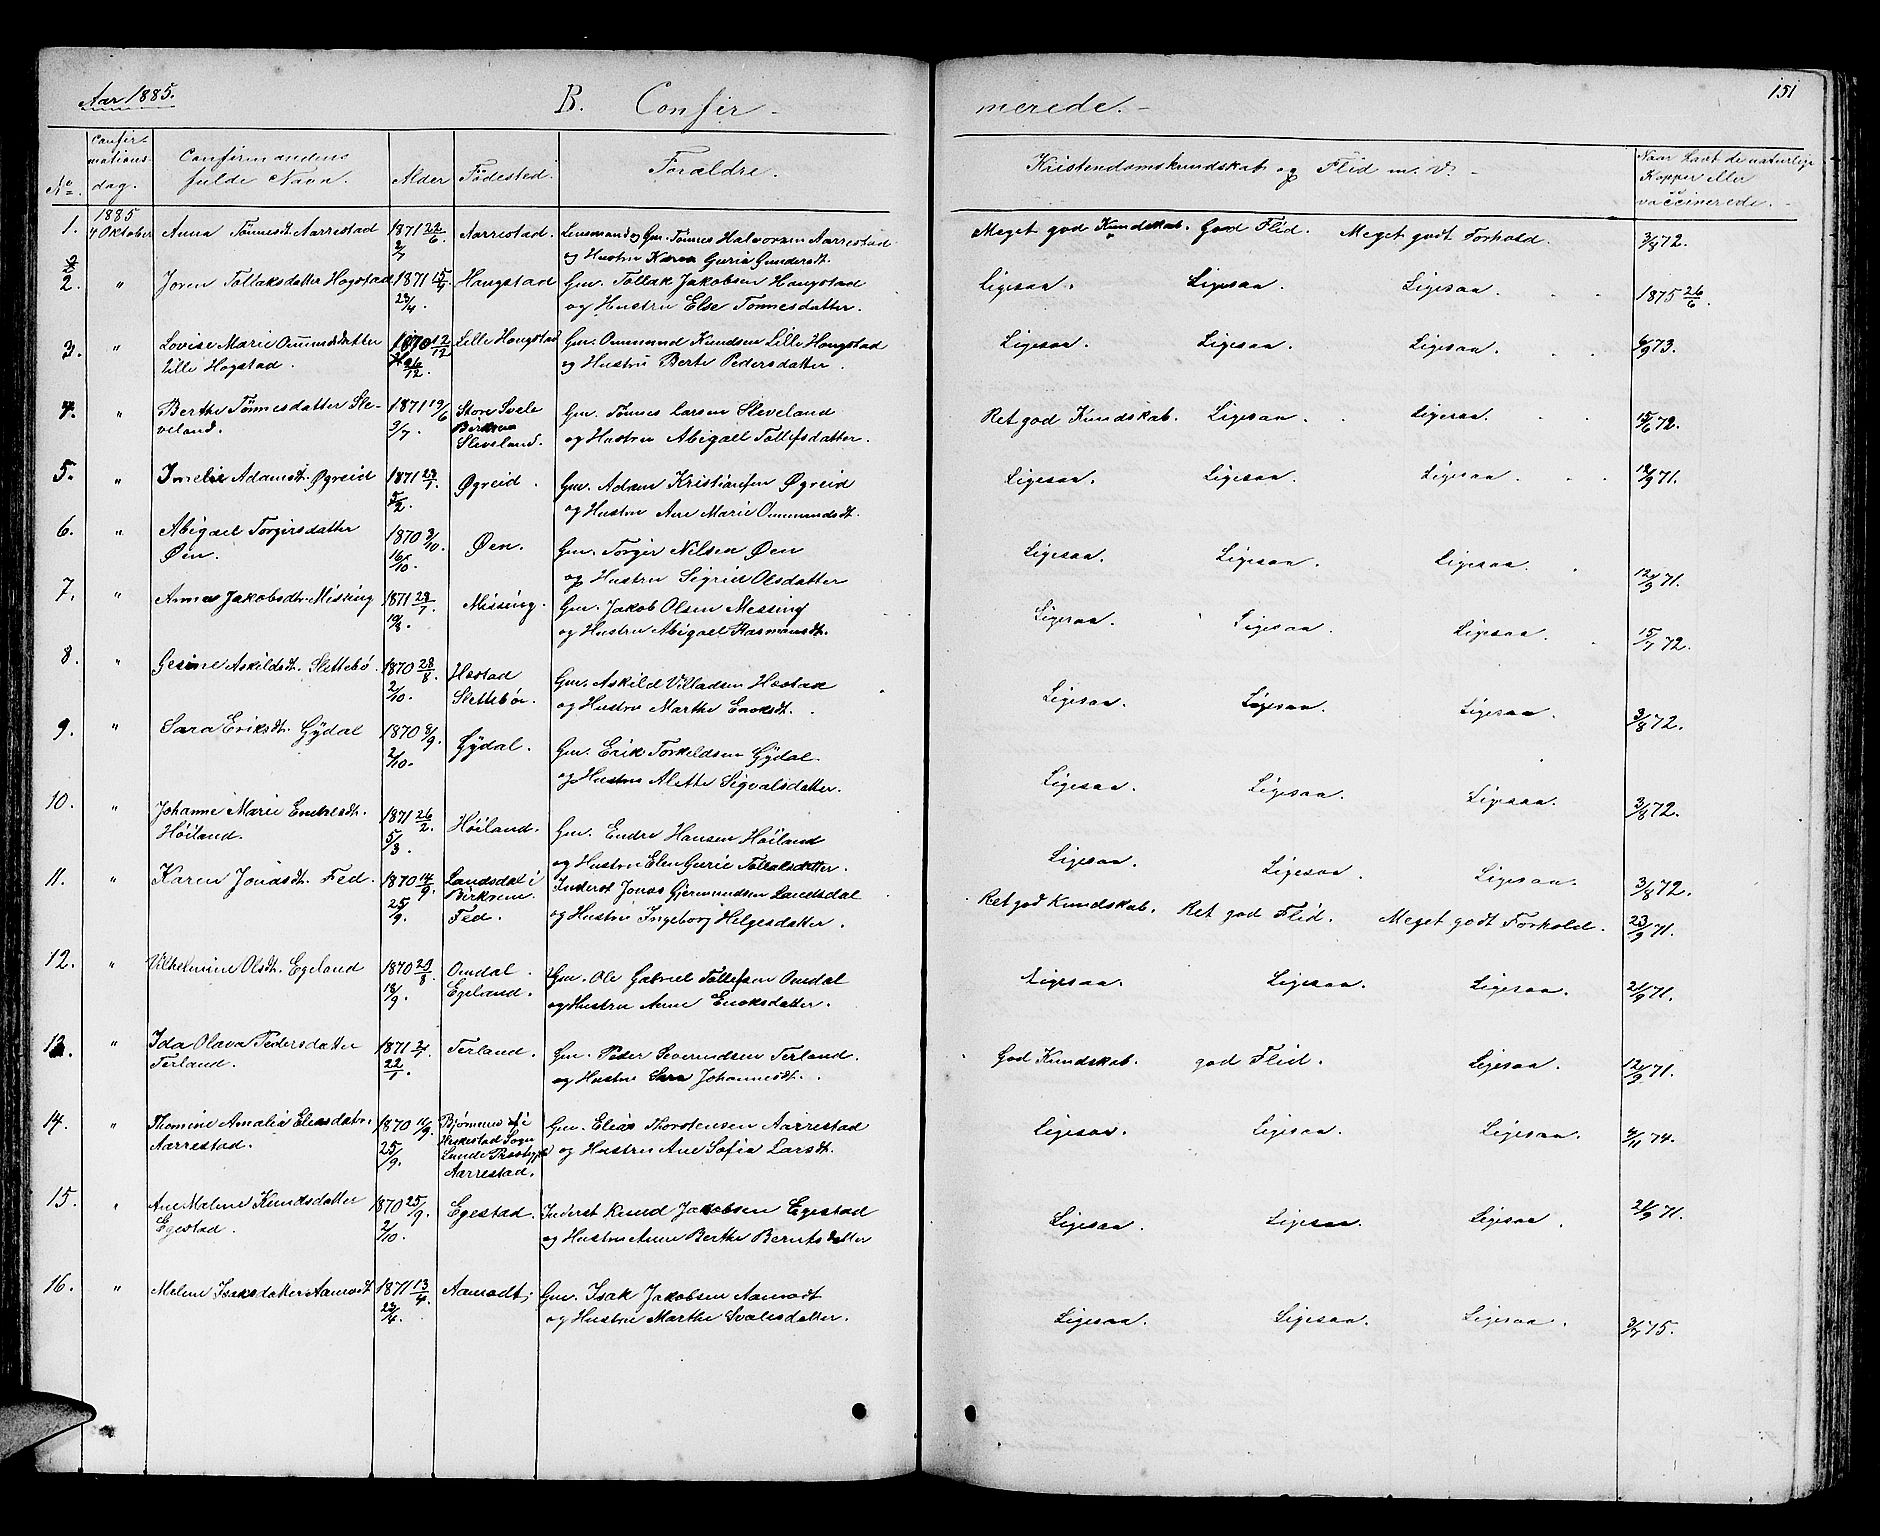 Aar 1885.
B. Confirmerede.
151
No. | Confirmations-dag. | Confirmandens fulde Navn. | Alder | Fødested. | Forældre. | Kristendomskundskab og Flid m. v. | Naar havt de naturlige Kopper eller vaccinerede.
1. | 1885 4 Oktober | Anna Tønnesdt. Aarrestad | 1871 22/6 2/7 | Aarrestad. | Lensmand og Gm. Tønnes Halvorsen Aarrestad og Hustru Karen Gurie Gundersdt. | Meget god Kundskab. God Flid. Meget godt Forhold. | 3/8 72.
2. | " | Joren Tollaksdatter Hogstad | 1871 15/4 23/4. | Haugstad | Gm. Tollak Jakobsen Haugstad og Hustru Else Tønnesdatter. | Ligesaa. Ligesaa. Ligesaa. | 1875 26/6.
3. | " | Lovise Marie Ommundsdatter Lille Hogstad. | 1870 12/12 26/12. | Lille Haugstad | Gm. Ommund Knudsen Lille Haugstad og Hustru Berte Pedersdatter. | Ligesaa. Ligesaa. Ligesaa. | 6/9 73.
4. | " | Berthe Tønnesdatter Sleveland. | 1871 19/6 9/7. | Store Svele Birkrem Sleveland. | Gm. Tønnes Larsen Sleveland og Hustru Abigael Tollefsdatter. | Ret god Kundskab. Ligesaa. Ligesaa. | 15/6 72.
5. | " | Imelie Adamsdt. Øgreid | 1871 23/1 5/2. | Øgreid. | Gm. Adam Kristiansen Øgreid og Hustru Ane Marie Ommundsdt. | Ligesaa. Ligesaa. Ligesaa. | 12/9 71.
6. | " | Abigael Torgirsdatter Øen. | 1870 9/10. 16/10. | Øen. | Gm. Torgir Nilsen Øen og Hustru Sigrid Olsdatter | Ligesaa. Ligesaa. Ligesaa. | 12/9 71.
7. | " | Anna Jakobsdtr. Missing | 1871 28/7 10/8. | Missing. | Gm. Jakob Olsen Messing og Hustru Abigael Rasmusdt. | Ligesaa. Ligesaa. Ligesaa. | 15/7 72.
8. | " | Gesine Askildsdt. Slettebø. | 1870 28/8. 2/10. | Hæstad Slettebø. | Gm. Askild Villadsen Hæstad og Hustru Marthe Enoksdt. | Ligesaa. Ligesaa. Ligesaa. | 3/8 72.
9. | " | Sara Eriksdt. Gydal | 1870 8/9. 2/10. | Gydal. | Gm. Erik Torkeldsen Gydal. og Hustru Alette Sigvalsdatter. | Ligesaa. Ligesaa. Ligesaa. | 3/8 72.
10. | " | Johanne Marie Endresdt. Høiland. | 1871 26/2. 5/3. | Høiland. | Gm. Endre Hansen Høiland og Hustru Elen Gurie Tollaksdatter. | Ligesaa. Ligesaa. Ligesaa. | 3/8 72.
11. | " | Karen Jonasdt. Fed. | 1870 14/9. 25/9. | Landsdal i Birkrem. Fed. | Inderst Jonas Gjermundsen Landsdal og Hustru Ingeborg Helgesdatter. | Ret god Kundskab. Ret god Flid. Meget godt Forhold. | 23/9 71.
12. | " | Vilhelmine Olsdt. Egeland | 1870 29/8. 18/9. | Omdal. Egeland. | Gm. Ole Gabriel Tollefsen Omdal og Hustru Anne Enoksdatter. | Ligesaa. Ligesaa. Ligesaa. | 21/9 71.
13. | " | Ida Olava Pedersdatter Terland. | 1871 2/1. 22/1. | Terland. | Gm. Peder Severindsen Terland. og Hustru Sara Johannesdt. | God Kundskab. god Flid. Ligesaa. | 12/9 71.
14. | " | Thomine Amalia Eliasdatter Aarrestad. | 1870 11/9. 25/9. | Bjørnmo i Heskestad Sogn Lunde Præstegjæld Aarrestad. | Gm. Elias Thorstensen Aarrestad og Hustru Ane Sofia Larsdt. | Ligesaa. Ligesaa. Ligesaa. | 4/11 74.
15. | " | Ane Malene Knudsdatter Egestad. | 1870 25/9. 2/10. | Egestad. | Inderst Knud Jakobsen Egestad og Hustru Anne Berthe Berntsdatter | Ligesaa. Ligesaa. Ligesaa. | 21/9 71.
16. | " | Malene Isaksdatter Aamodt | 1871 13/4. 23/4. | Aamodt. | Gm. Isak Jakobsen Aamodt og Hustru Marthe Svalesdatter. | Ligesaa. Ligesaa. Ligesaa. | 3/7 75.